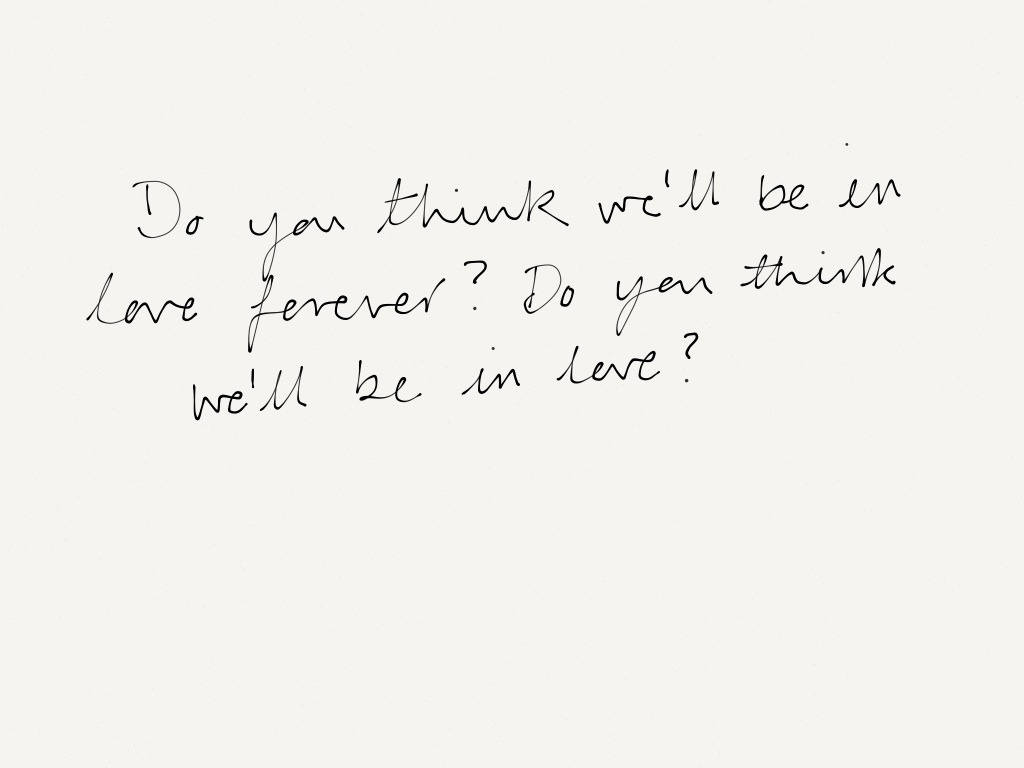 Do you think we'll be in
love forever? Do you think
we'll be in love?